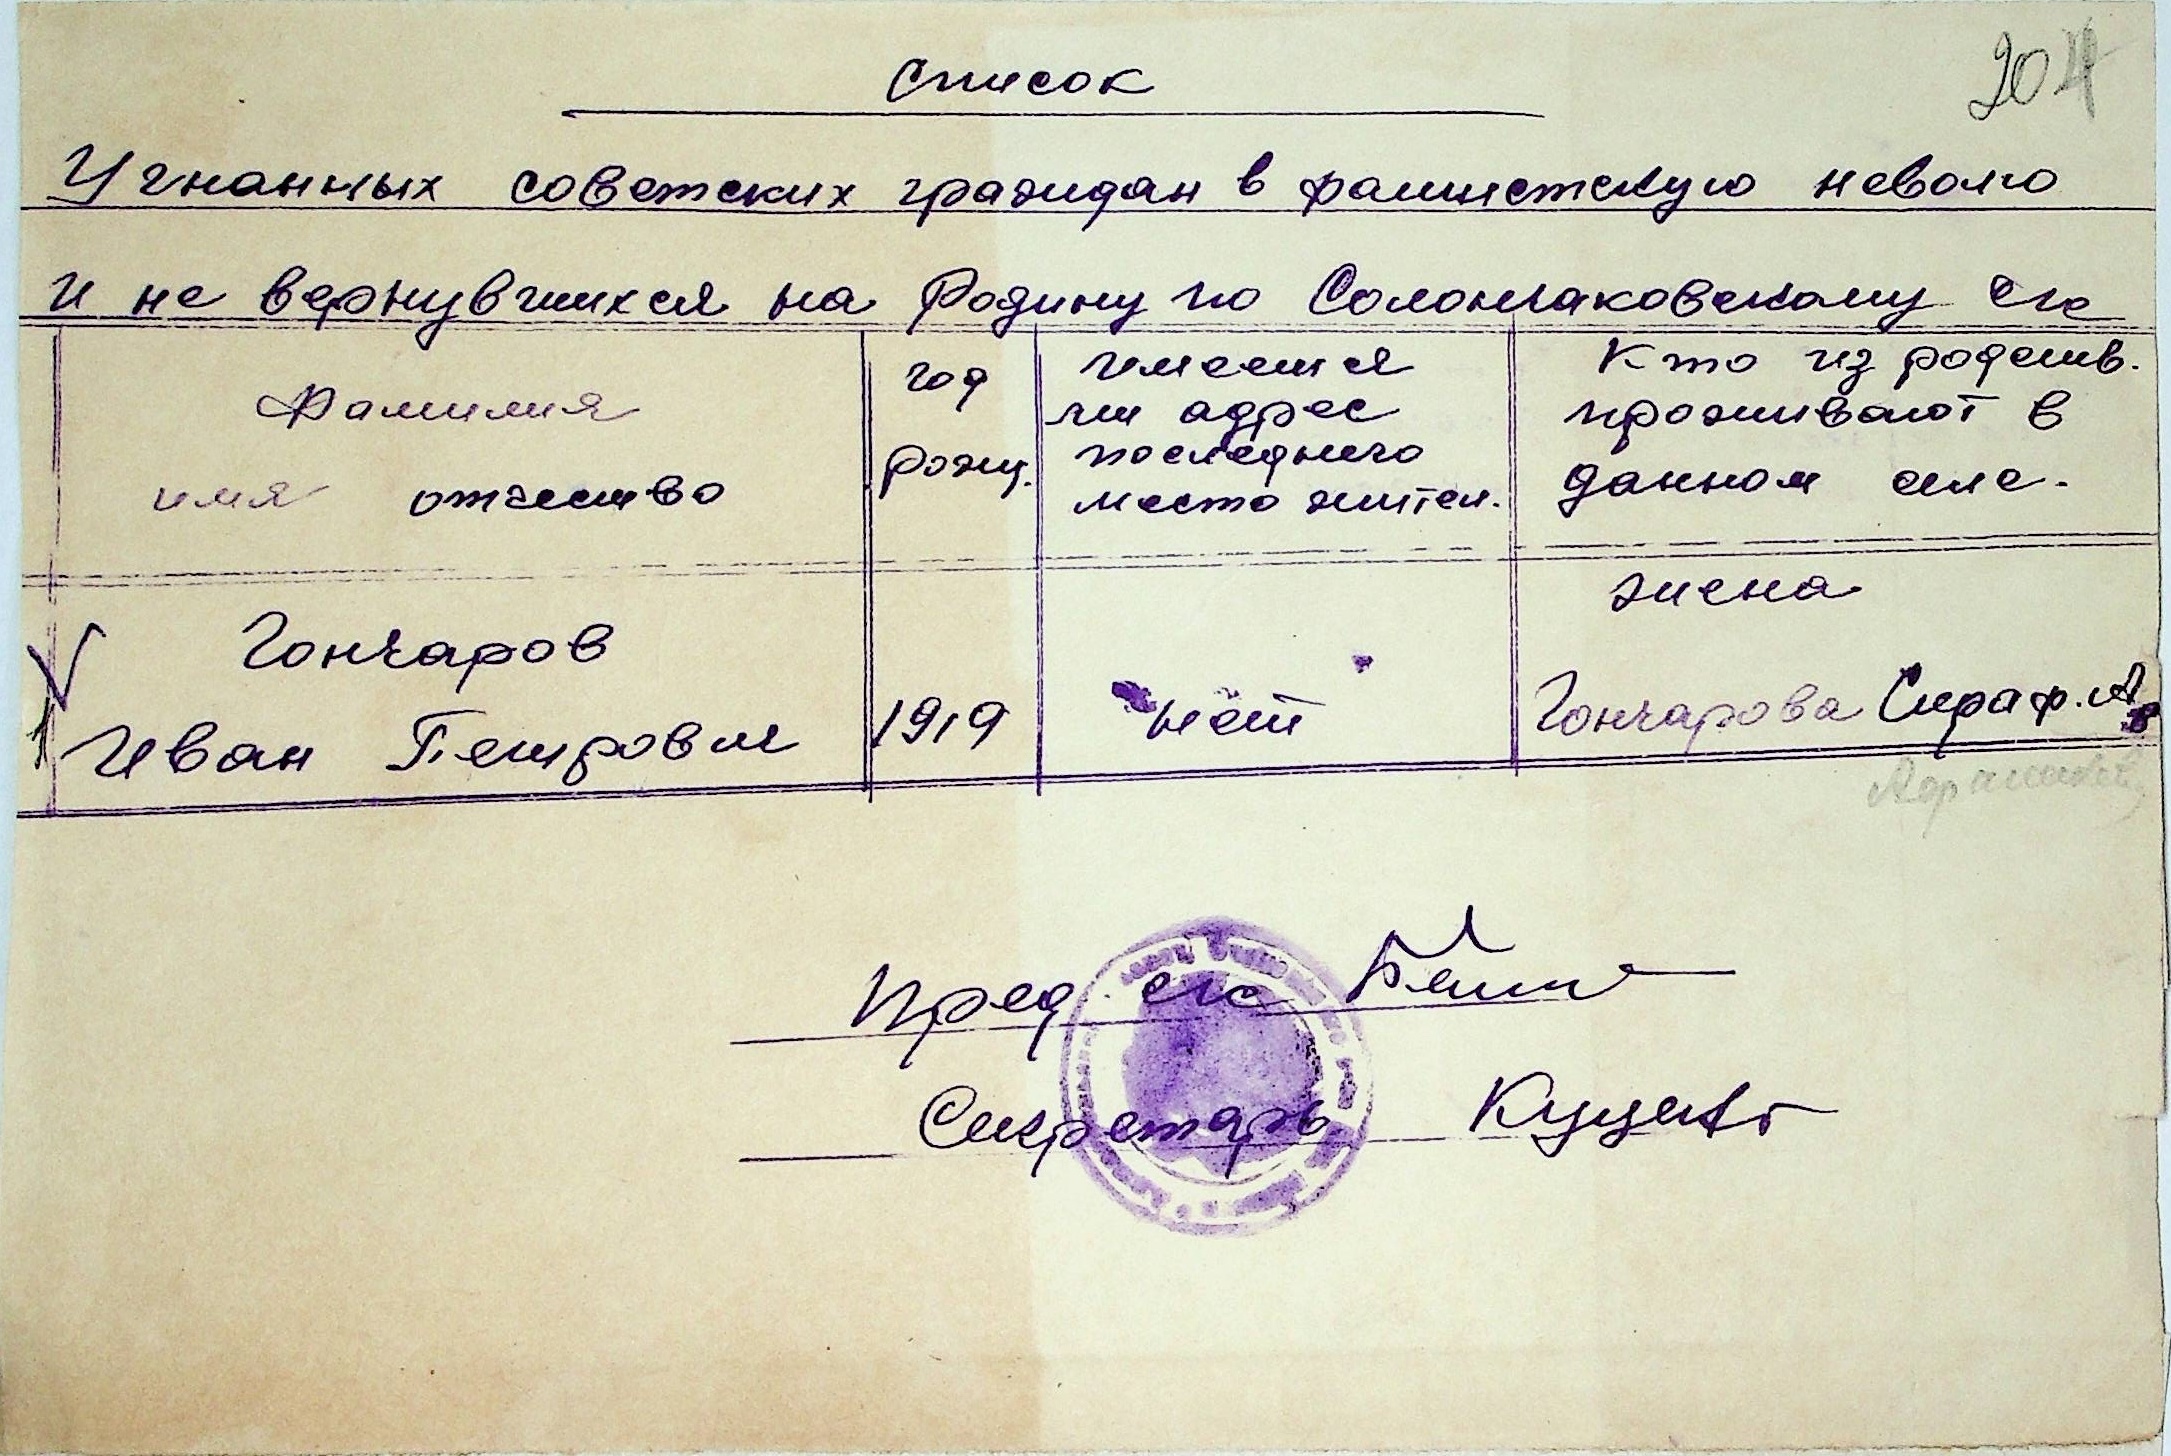 204
Список
Угнанных советских граждан в фашистскую неволю
и не вернувшихся на Родину по Солончаковскому с/с
Фамилия
имя отчество
год
рожд.
имеется
ли адрес
последнего
место жител.
Кто из родств.
проживают в
данном селе.
жена
Гончаров
1 Иван Петрович
1919
нет
Гончарова Сераф. А
Пред. с/с
Секретарь